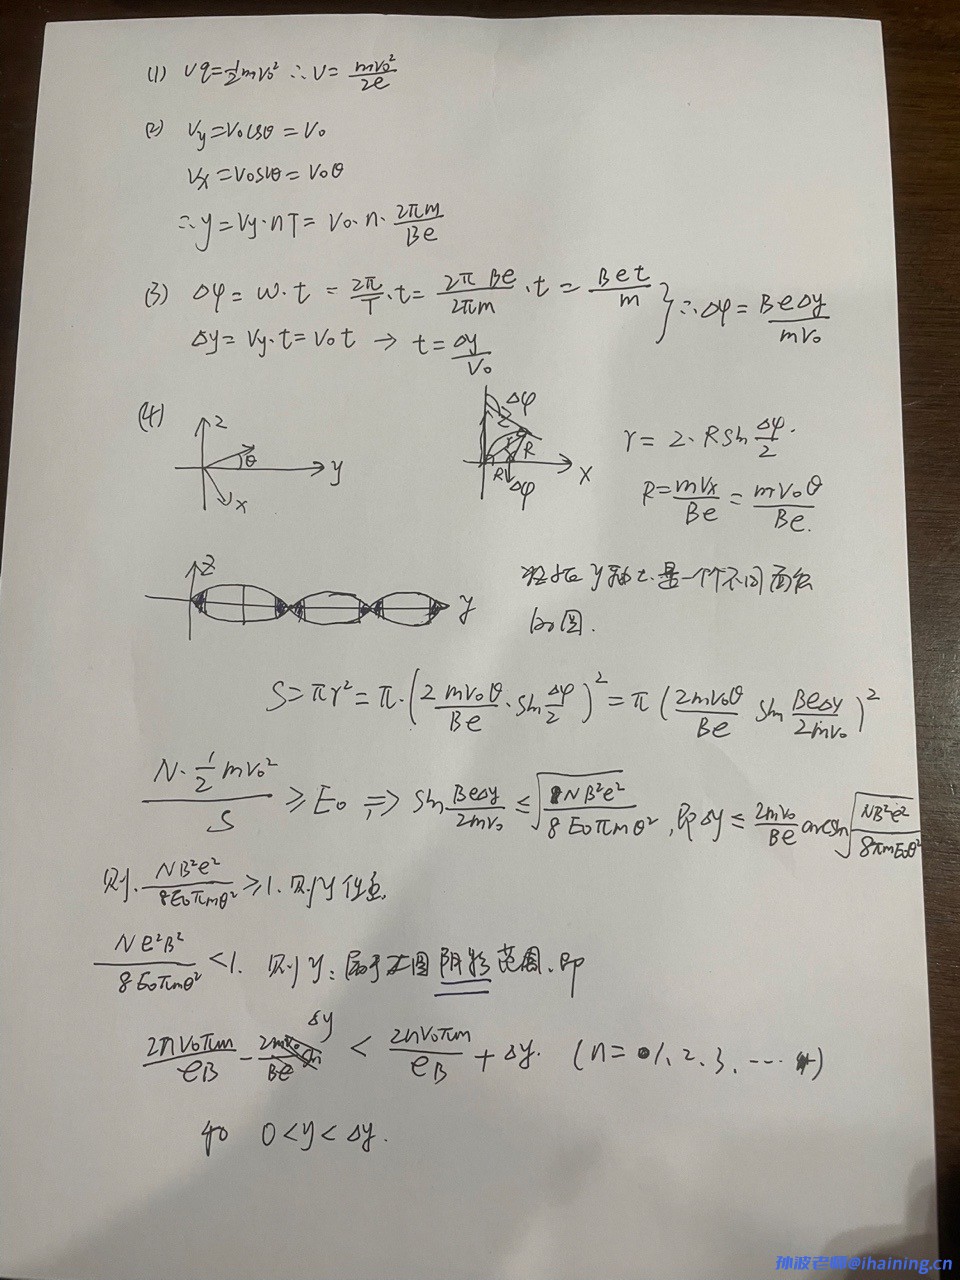 (1) Uq=½mv₀² ∴U= mv₀²/2e
(2) Vy=V₀cosθ = V₀
Vx=V₀sinθ= V₀θ
∴y=Vy·nT= V₀·n· 2πm/Be
(3) Δφ= ω·t = 2π/T·t= 2πBe/2πm ·t = Bet/m } ∴Δφ= BeΔy/mv₀
Δy= Vy·t=V₀t → t= Δy/V₀
(4)
z
θ
y
x
Δφ
R
R
Δφ
x
r= 2·Rsin Δφ/2.
R= mVx/Be = mV₀θ/Be.
z
y
y轴上是一个个不同面积
如图.
S=πr²=π·(2 mv₀θ/Be ·sin Δφ/2)² = π (2mv₀θ/Be sin BeΔy/2mv₀)²
N·½mv₀²/S ≥E₀ => sin BeΔy/2mv₀ ≤ √(NB²e²/8E₀πmθ²), 即Δy ≤ 2mv₀/Be arcsin√(NB²e²/8πmE₀θ²)
则. NB²e²/8E₀πmθ² ≥1. 则y任意.
Ne²B²/8E₀πmθ² <1. 则y: 属于上图阴影范围.即
2nv₀πm/eB - Δy < 2nv₀πm/eB + Δy. (n= 1、2、3、……)
和 0<y<Δy.
孙波老师@ihaining.cn